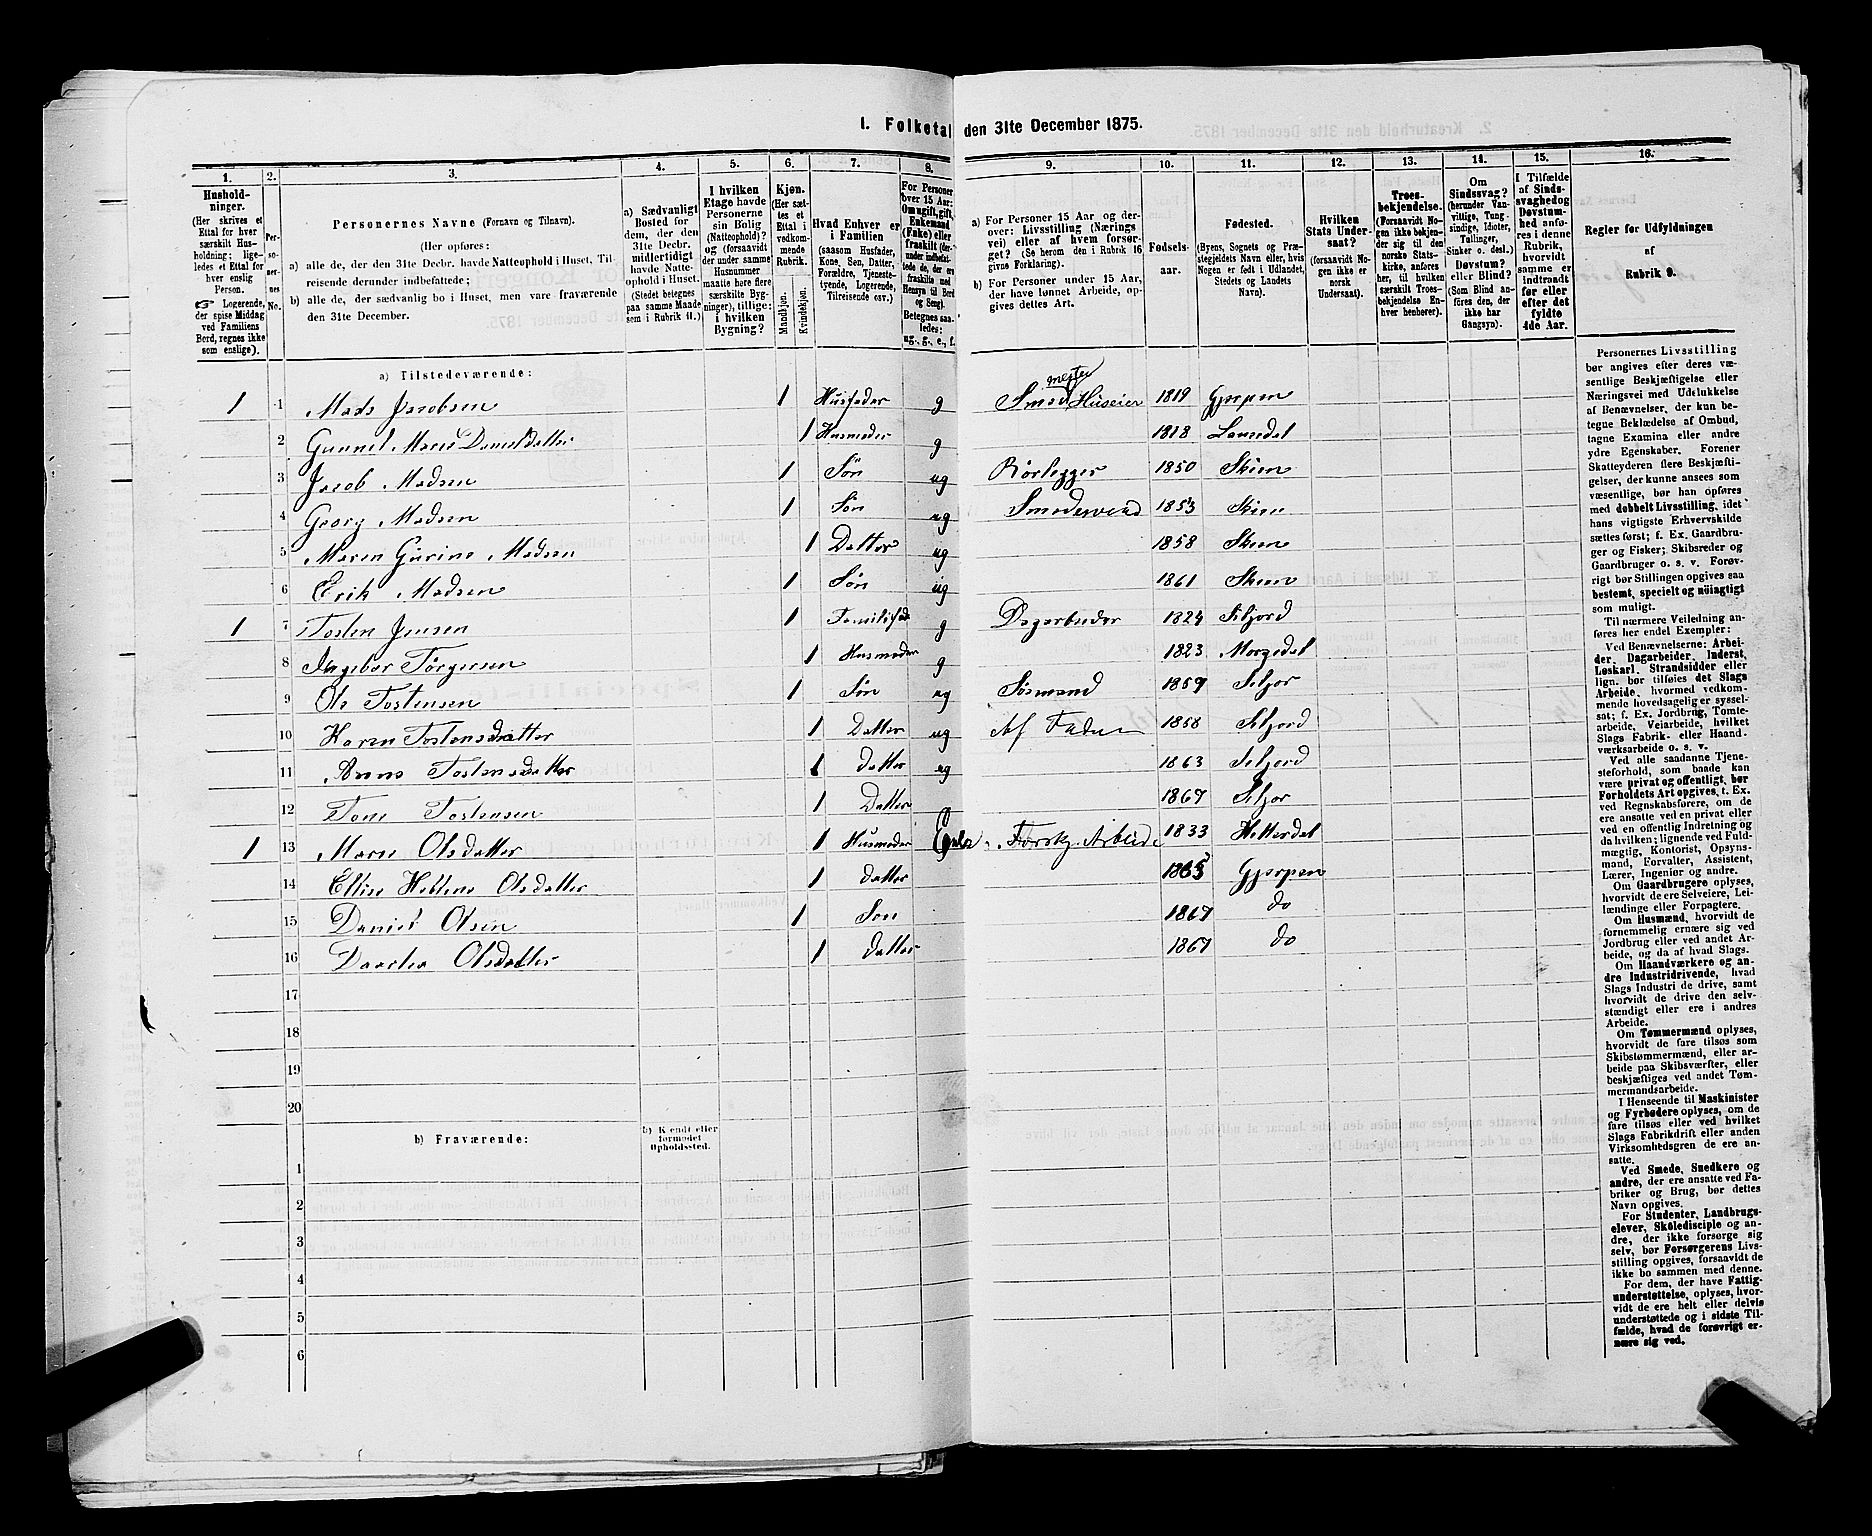 1. Folketal den 31te December 1875.
1. 2. 3. 4. 5. 6. 7. 8. 9. 10. 11. 12. 13. 14. 15. 16.
Husholdninger.
(Her skrives et
Ettal for hver
særskilt Husholdning;
ligeledes et Ettal for
hver enslig
Person.
☞ Logerende,
der spise Middag
ved Familiens
Bord, regnes ikke
som enslige).
Personernes No.
Personernes Navne (Fornavn og Tilnavn).
(Her opføres:
a) alle de, der den 31te Decbr. havde Natteophold i Huset, Tilreisende derunder indbefattede;
b) alle de, der sædvanlig bo i Huset, men vare fraværende
den 31te December.
a) Sædvanligt
Bosted for
dem, der den
31te Decbr.
midlertidigt
havde Natteophold i Huset.
(Stedet betegnes
paa samme Maade
som i Rubrik 11.)
I hvilken
Etage havde
Personerne
sin Bolig
(Natteophold)?
og (forsaavidt
der under samme
Husnummer
maatte høre flere
særskilte Bygninger), tillige:
i hvilken
Bygning?
Kjøn.
(Her sættes et
Ettal i
vedkommende
Rubrik.
Mandkjøn.
Kvindekjøn.
Hvad Enhver er
i Familien
(saasom Husfader,
Kone, Søn, Datter,
Forældre, Tjenestetyende, Logerende,
Tilreisende osv.)
For Personer
over 15 Aar:
Om ugift, gift,
Enkemand
(Enke) eller
fraskilt
Betegnes saaledes:
ug., g., e., f.
a) For Personer 15 Aar og derover: Livsstilling (Næringsvei) eller af hvem forsørget? (Se herom den i Rubrik 16
givne Forklaring).
b) For Personer under 15 Aar,
der have lønnet Arbeide, opgives dettes Art.
Fødselsaar.
Fødested.
(Byens, Sognets og Præstegjeldets Navn eller, hvis
Nogen er født i Udlandet,
Stedets og Landets
Navn).
Hvilken
Stats Undersaat?
(forsaavidt Nogen ikke er
norsk
Undersaat).
Troesbekjendelse.
(Forsaavidt Nogen ikke bekjender sig til den
norske Statskirke, anføres
her, til hvilken
særskilt Troesbekjendelse Enhver henhører).
Om
Sindssvag?
(herunder Vanvittige, Tungsindige, Idioter,
Tullinger,
Sinker o. desl.)
Døvstum?
eller Blind?
(Som Blind anføres den, der
ikke har
Gangsyn).
I Tilfælde
af Sindssvaghed og
Døvstumhed anføres i denne
Rubrik,
hvorvidt
samme er
indtraadt
før eller
efter det
fyldte
4de Aar.
Regler for Udfyldningen
af
Rubrik 9.
a) Tilstedeværende:
1 1 Mads Jacobsen 1 Husfader g Smedmester Huseier 1819 Gjerpen
2 Gunnil Marie Danieldatter 1 Husmoder g 1818 Laurdal
3 Jacob Madsen 1 Søn ug Rørlegger 1850 Skien
4 Georg Madsen 1 Søn ug Smedesvend 1853 Skien
5 Maren Gurine Madsen 1 Datter ug 1858 Skien
6 Erik Madsen 1 Søn ug 1861 Skien
1 7 Tosten Jensen 1 Familiefad g Dagarbeder 1824 Siljord
8 Ingebor Torgersen 1 Husmoder g 1823 Morgedal
9 Ole Tostensen 1 Søn ug Søemand 1859 Seljor
10 Karen Tostensdatter 1 Datter ug Af Faderen 1858 Seljord
11 Anne Tostensdatter 1 datter ug 1863 Seljord
12 Tone Tostensen 1 Datter 1867 Seljor
1 13 Maren Olsdatter 1 Husmoder Enke Forskj. Arbeide 1833 Hetterdal
14 Elise Helene Olsdatter 1 datter 1865 Gjerpen
15 Daniel Olsen 1 Søn 1867 do
16 Dorthea Olsdatter 1 datter 1867 do
17
18
19
20
b) Fraværende: b) Kjendt eller
formodet
Opholdssted.
1
2
3
4
5
6
Personernes Livsstilling
bør angives efter deres væsentlige Beskjæftigelse eller
Næringsvei med Udelukkelse
af Benævnelser, der kun betegne Beklædelse af Ombud,
tagne Examina eller andre
ydre Egenskaber. Forener
Skatteyderen flere Beskjæftigelser, der kunne ansees som
væsentlige, bør han opføres
med dobbelt Livsstilling, idet
hans vigtigste Erhvervskilde
sættes først; f. Ex. Gaardbruger og Fisker; Skibsreder og
Gaardbruger o. s. v. Forøvrigt bør Stillingen opgives saa
bestemt, specielt og nøiagtigt
som muligt.
Til nærmere Veiledning anføres her endel Exempler:
Ved Benævnelserne: Arbeider, Dagarbeider, Inderst,
Løskarl, Strandsidder eller
lign. bør tilføies det Slags
Arbeide, hvormed vedkommende hovedsagelig er sysselsat; f. Ex. Jordbrug, Tomtearbeide, Veiarbeide, hvilket
Slags Fabrik- eller Haandværksarbeide o. s. v.
Ved alle saadanne Tjenesteforhold, som baade kan
være privat og offentligt, bør
Forholdets Art opgives, t. Ex.
ved Regnskabsførere, om de
ere ansatte ved en privat eller
ved en offentlig Indretning og
da hvilken; lignende ved Fuldmægtig, Kontorist, Opsynsmand, Forvalter, Assistent,
Lærer, Ingeniør og andre.
Om Gaardbrugere oplyses,
hvorvidt de ere Selveiere, Leilændinge eller Forpagtere.
Om Husmænd, hvorvidt de
fornemmelig ernære sig ved
Jordbrug eller ved andet Arbeide, og da af hvad Slags.
Om Haandværkere og andre Industridrivende, hvad
Slags Industri de drive, samt
hvorvidt de drive den selvstændigt eller ere i andres
Arbeide.
Om Tømmermænd oplyses,
hvorvidt de fare tilsøs som
Skibstømmermænd, eller arbeide paa Skibsværfter, eller
beskjæftiges ved andet Tømmermandsarbeide.
I Henseende til Maskinister
og Fyrbødere oplyses, om de
fare tilsøs eller ved hvilket
Slags Fabrikdrift eller anden
Virksomhedsgren de ere ansatte.
Ved Smede, Snedkere og
andre, der ere ansatte ved Fabriker og Brug, bør dettes
Navn opgives.
For Studenter, Landbrugselever, Skoledisciple og andre, der ikke forsørge sig
selv, bør Forsørgerens Livsstilling opgives, forsaavidt de
ikke bo sammen med denne.
For dem, der have Fattigunderstøttelse, oplyses, hvorvidt de ere helt eller delvis
understøttede og i sidste Tilfælde, hvad de forøvrigt ernære sig ved.